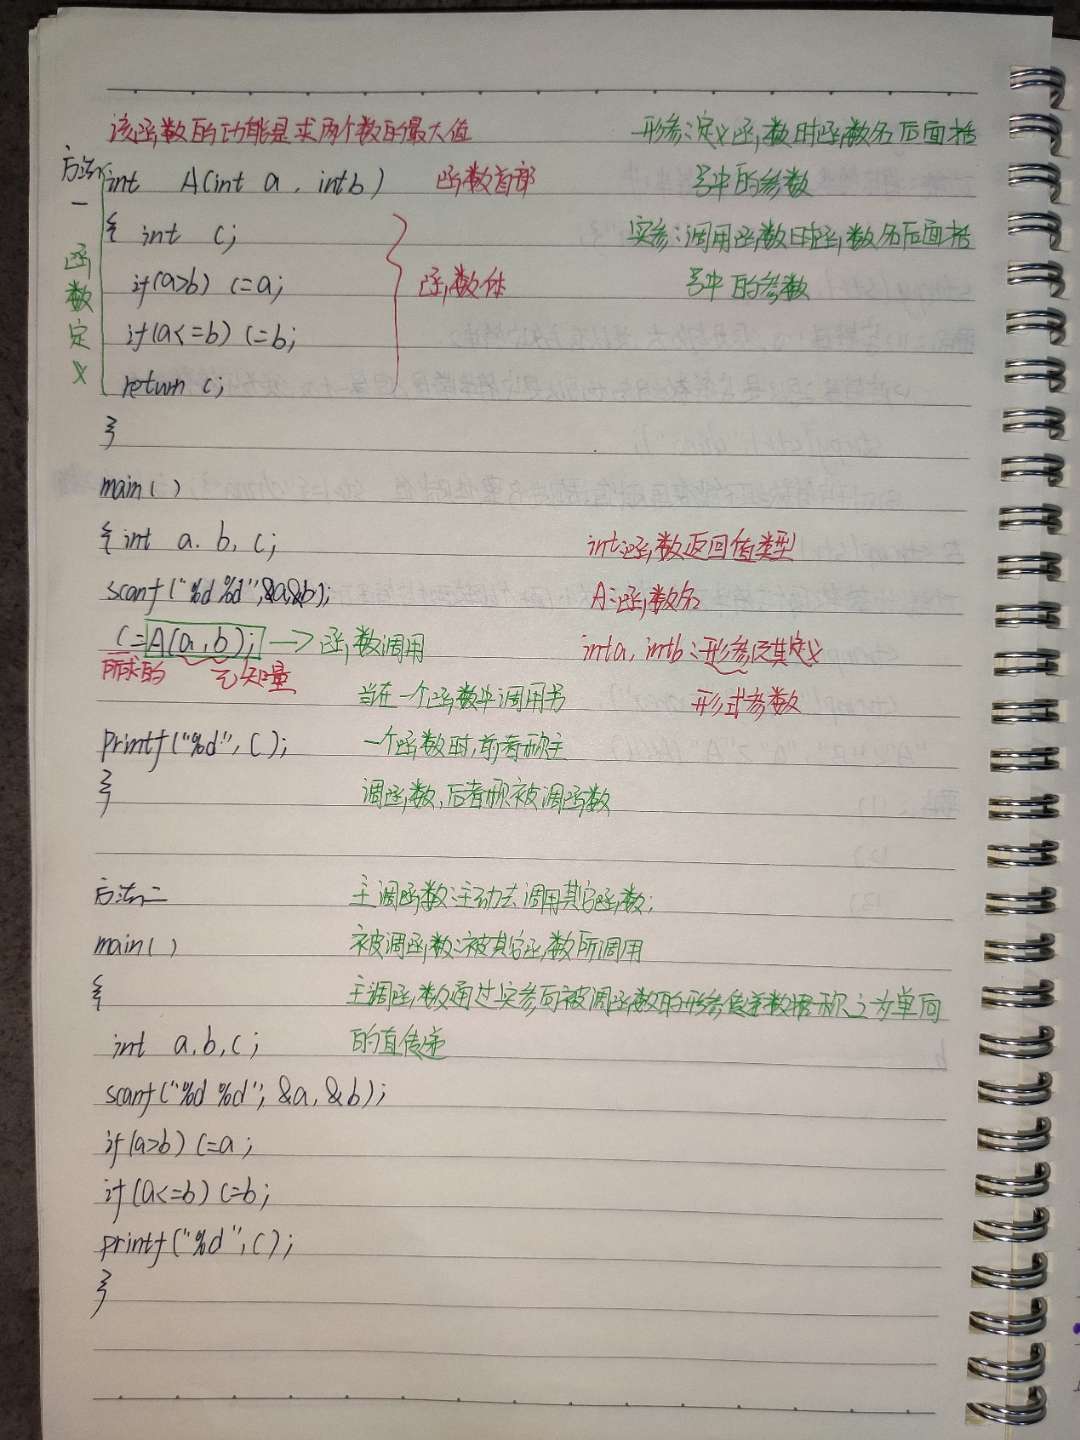 该函数的功能是求两个数的最大值
形参:定义函数时函数名后面括
号中的参数
实参:调用函数时函数名后面括
号中的参数
方法一
int A(int a, int b) 函数首部
{ int c;
if(a>b) c=a;
if(a<=b) c=b;
return c;
}
函数定义
函数体
main()
{int a.b,c;
scanf("%d %d",&a,&b);
c=A(a,b); —> 函数调用
所求的 已知量
printf("%d",c);
}
int:函数返回值类型
A:函数名
int a, int b:形参及其定义
形式参数
当在一个函数中调用另
一个函数时,前者称主
调函数,后者称被调函数
方法二
main()
{
int a,b,c;
scanf("%d %d",&a,&b);
if(a>b) c=a;
if(a<=b) c=b;
printf("%d",c);
}
主调函数:主动去调用其它函数;
被调函数:被其它函数所调用
主调函数通过实参向被调函数的形参传递数据称之为单向
的值传递